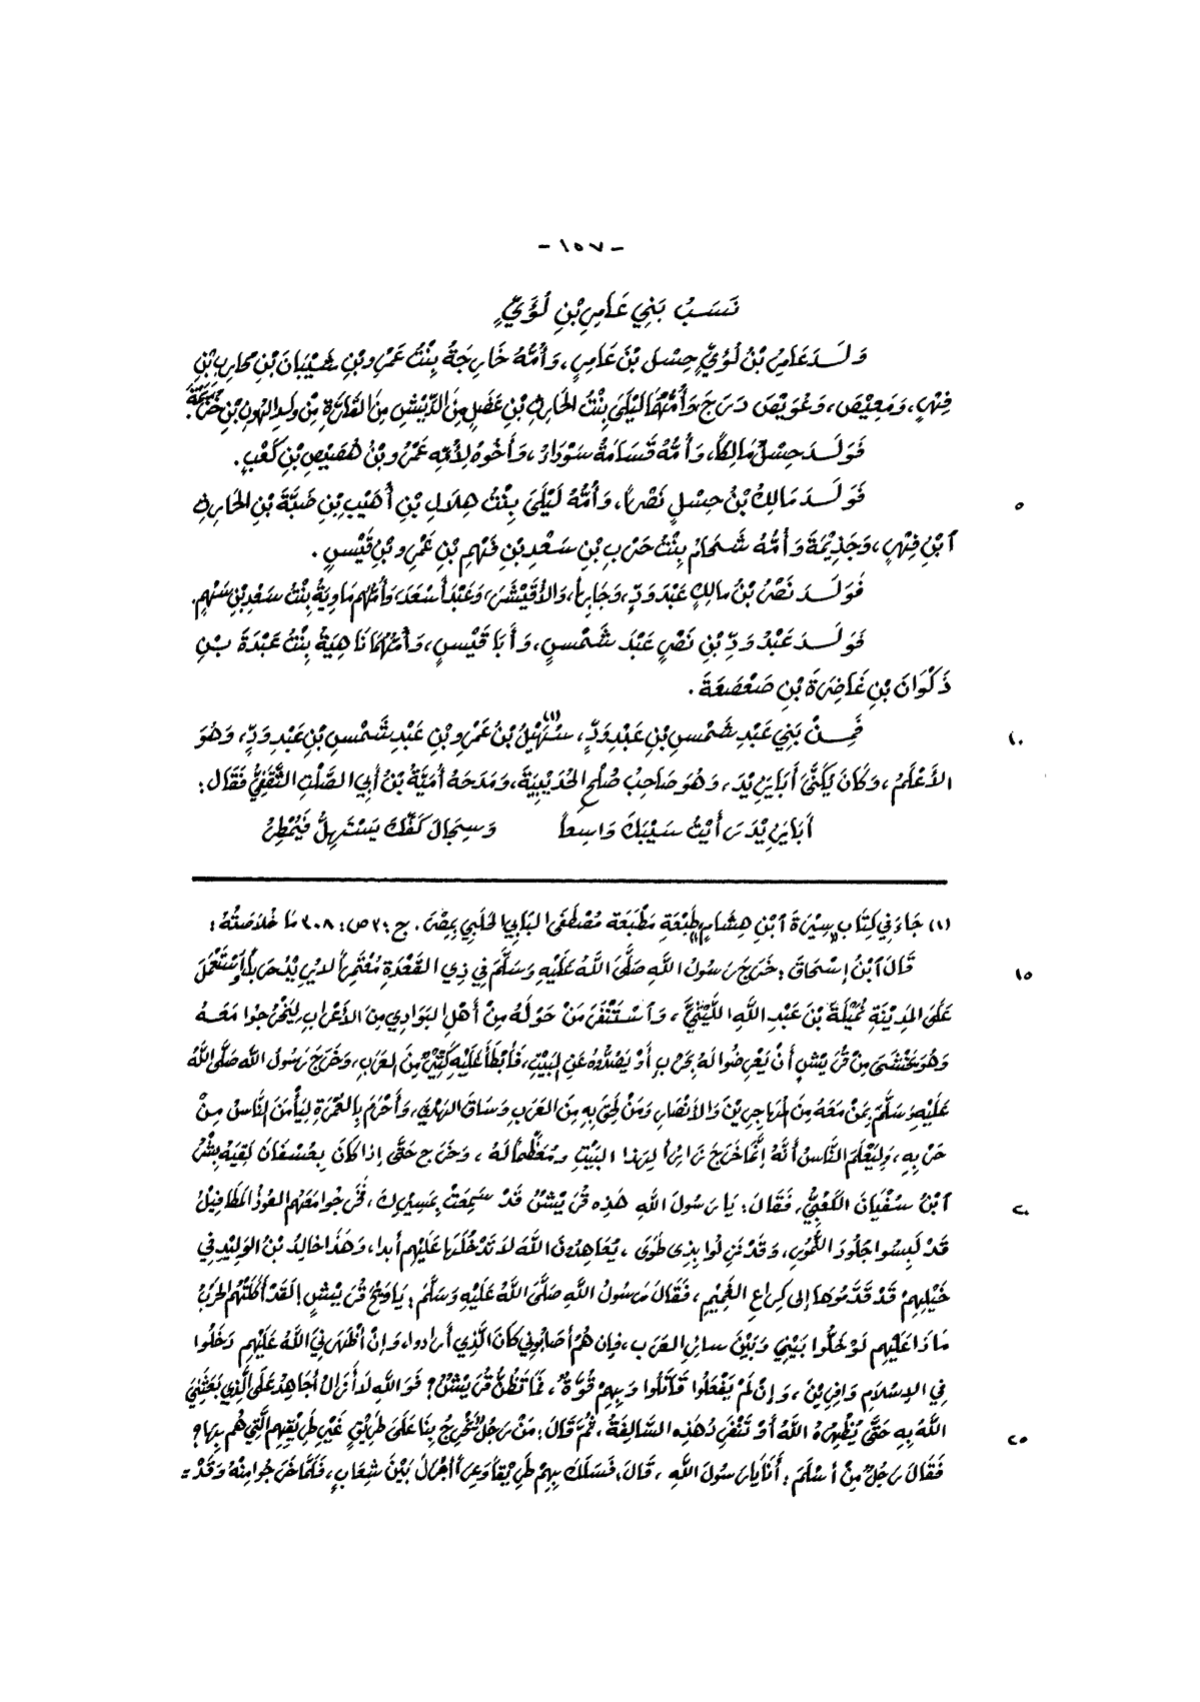 - ١٥٧ -
نَسَبُ بَنِي عَامِرِ بْنِ لُؤَيٍّ
وَلَدَ عَامِرُ بْنُ لُؤَيٍّ حِسْلَ بْنَ عَامِرٍ، وَأُمُّهُ خَارِجَةُ بِنْتُ عَمْرِو بْنِ شَيْبَانَ بْنِ مُحَارِبِ بْنِ
فِهْرٍ، وَمَعِيْصَ، وَعُوَيْصَ دَرَجَ وَأُمُّهُمَا لَيْلَى بِنْتُ الحَارِثِ بْنِ عَضَلٍ مِنَ الدِّيْشِ مِنَ القَارَةِ مِنْ وَلَدِ الهُونِ بْنِ خُزَيْمَةَ.
فَوَلَدَ حِسْلٌ مَالِكاً، وَأُمُّهُ قَسَامَةُ سَوْدَاءُ، وَأَخُوهُ لِأُمِّهِ عَمْرُو بْنُ هُصَيْصِ بْنِ كَعْبٍ.
فَوَلَدَ مَالِكُ بْنُ حِسْلٍ نَصْراً، وَأُمُّهُ لَيْلَى بِنْتُ هِلَالِ بْنِ أُهَيْبِ بْنِ ضَبَّةَ بْنِ الحَارِثِ
٥
ٱبْنِ فِهْرٍ، وَجَذِيْمَةَ وَأُمُّهُ شَحَامُ بِنْتُ حَرْبِ بْنِ سَعْدِ بْنِ فَهْمِ بْنِ عَمْرِو بْنِ قَيْسٍ.
فَوَلَدَ نَصْرُ بْنُ مَالِكٍ عَبْدَ وَدٍّ، وَجَابِراً، وَالأُقَيْشَرَ، وَعَبْدَ أَسْعَدَ، وَأُمُّهُم مَاوِيَةُ بِنْتُ سَعْدِ بْنِ سَهْمٍ.
فَوَلَدَ عَبْدُ وَدِّ بْنِ نَصْرٍ عَبْدَ شَمْسٍ، وَأَبَا قَيْسٍ، وَأُمُّهُمَا نَاهِيَةُ بِنْتُ عَبْدَةَ بْنِ
ذَكْوَانَ بْنِ غَاضِرَةَ بْنِ صَعْصَعَةَ.
فَمِنْ بَنِي عَبْدِ شَمْسِ بْنِ عَبْدِ وَدٍّ، سُهَيْلُ(١) بْنُ عَمْرِو بْنِ عَبْدِ شَمْسِ بْنِ عَبْدِ وَدٍّ، وَهُوَ
١٠
الأَعْلَمُ، وَكَانَ يُكَنَّى أَبَا يَزِيْدَ، وَهُوَ صَاحِبُ صُلْحِ الحُدَيْبِيَةِ، وَمَدَحَهُ أُمَيَّةُ بْنُ أَبِي الصَّلْتِ الثَّقَفِيُّ فَقَالَ:
أَبَا يَزِيْدَ رَأَيْتُ سَيْبَكَ وَاسِعاً وَسِجَالَ كَفِّكَ يَسْتَهِلُّ فَيُمْطِرُ
(١) جَاءَ فِي كِتَابِ سِيْرَةِ ٱبْنِ هِشَامٍ طَبْعَةِ مَطْبَعَةِ مُصْطَفَى البَابِي الحَلَبِي بِمِصْرَ. ج: ٢ ص: ٣٠٨ مَا خُلَاصَتُهُ:
قَالَ ٱبْنُ إِسْحَاقَ: خَرَجَ رَسُولُ اللَّهِ صَلَّى اللَّهُ عَلَيْهِ وَسَلَّمَ فِي ذِي القَعْدَةِ مُعْتَمِراً لَا يُرِيْدُ حَرْباً وَٱسْتَعْمَلَ
١٥
عَلَى المَدِيْنَةِ نُمَيْلَةَ بْنَ عَبْدِ اللَّهِ اللَّيْثِيَّ، وَٱسْتَنْفَرَ مَنْ حَوْلَهُ مِنْ أَهْلِ البَوَادِي مِنَ الأَعْرَابِ لِيَخْرُجُوا مَعَهُ
وَهُوَ يَخْشَى مِنْ قُرَيْشٍ أَنْ يَعْرِضُوا لَهُ بِحَرْبٍ أَوْ يَصُدُّوهُ عَنِ البَيْتِ، فَأَبْطَأَ عَلَيْهِ كَثِيْرٌ مِنَ العَرَبِ، وَخَرَجَ رَسُولُ اللَّهِ صَلَّى اللَّهُ
عَلَيْهِ وَسَلَّمَ بِمَنْ مَعَهُ مِنَ المُهَاجِرِيْنَ وَالأَنْصَارِ وَمَنْ لَحِقَ بِهِ مِنَ العَرَبِ وَسَاقَ الهَدْيَ، وَأَحْرَمَ بِالعُمْرَةِ لِيَأْمَنَ النَّاسُ مِنْ
حَرْبِهِ، وَلِيَعْلَمَ النَّاسُ أَنَّهُ إِنَّمَا خَرَجَ زَائِراً لِهَذَا البَيْتِ وَمُعَظِّماً لَهُ، وَخَرَجَ حَتَّى إِذَا كَانَ بِعُسْفَانَ لَقِيَهُ بِشْرُ
ٱبْنُ سُفْيَانَ الكَعْبِيُّ، فَقَالَ: يَا رَسُولَ اللَّهِ هَذِهِ قُرَيْشٌ قَدْ سَمِعَتْ بِمَسِيْرِكَ، فَخَرَجُوا مَعَهُم العُوذُ المَطَافِيْلُ
٢٠
قَدْ لَبِسُوا جُلُودَ النُّمُورِ، وَقَدْ نَزَلُوا بِذِي طَوَى، يُعَاهِدُونَ اللَّهَ لَا تَدْخُلُهَا عَلَيْهِم أَبَداً، وَهَذَا خَالِدُ بْنُ الوَلِيْدِ فِي
خَيْلِهِمْ قَدْ قَدَّمُوهَا إِلَى كُرَاعِ الغَمِيْمِ، فَقَالَ رَسُولُ اللَّهِ صَلَّى اللَّهُ عَلَيْهِ وَسَلَّمَ: يَا وَيْحَ قُرَيْشٍ! لَقَدْ أَكَلَتْهُم الحَرْبُ
مَاذَا عَلَيْهِم لَوْ خَلُّوا بَيْنِي وَبَيْنَ سَائِرِ العَرَبِ، فَإِن هُمْ أَصَابُونِي كَانَ الَّذِي أَرَادُوا، وَإِنْ أَظْهَرَنِيَ اللَّهُ عَلَيْهِم دَخَلُوا
فِي الإِسْلَامِ وَافِرِيْنَ، وَإِنْ لَمْ يَفْعَلُوا قَاتَلُوا وَبِهِمْ قُوَّةٌ، فَمَا تَظُنُّ قُرَيْشٌ؟ فَوَ اللَّهِ لَا أَزَالُ أُجَاهِدُ عَلَى الَّذِي بَعَثَنِيَ
اللَّهُ بِهِ حَتَّى يُظْهِرَهُ اللَّهُ أَوْ تَنْفَرِدَ هَذِهِ السَّالِفَةُ، ثُمَّ قَالَ: مَنْ رَجُلٌ يَخْرُجُ بِنَا عَلَى طَرِيْقٍ غَيْرِ طَرِيْقِهِم الَّتِي هُم بِهَا؟
٢٥
فَقَالَ رَجُلٌ مِنْ أَسْلَمَ: أَنَا يَا رَسُولَ اللَّهِ، قَالَ: فَسَلَكَ بِهِمْ طَرِيْقاً وَعِراً أَجْرَلَ بَيْنَ شِعَابٍ، فَلَمَّا خَرَجُوا مِنْهُ وَقَدْ =